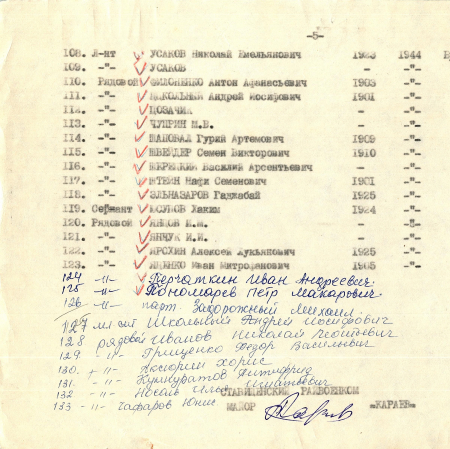 -5-
108. Л-нт УСАКОВ Николай Емельянович 1923 1944
109. -"- УСАКОВ - -"-
110. Рядовой ФИЛОНЕНКО Антон Афанасьевич 1903 -"-
111. -"- ШКОЛЬНЫЙ Андрей Иосифович 1901 -"-
112. -"- -"-
113. -"- ЧУПРИН М.В. -"-
114. -"- ШАПОВАЛ Гурий Артемович 1909 -"-
115. -"- ШНЕЙДЕР Семен Викторович 1910 -"-
116. -"- Василий Арсентьевич - -"-
117. -"- ШТЕЙН Семенович 1901 -"-
118. -"- ЭЛЬНАЗАРОВ Гаджабай 1925 -"-
119. Сержант ЮСУПОВ Хаким 1924 -"-
120. Рядовой И.М. -
121. -"- ЯНЧУК И.И. -"-
122. -"- ЯРОХИН Алексей Лукьянович 1925 -"-
123. -"- Иван Митрофанович 1905 -"-
124 -"- Перчаткин Иван Андреевич.
125 -"- Пономарев Петр Макарович.
126 -"- парт. Задорожный Михаил.
127 мл с-т Школьный Андрей Иосифович
128 рядовой Иванов Николай Леонтьевич
129 -"- Грищенко Федор Васильевич
130. -"- Хорис
131. -"-
132 -"- Носаль Игнатьевич
133 -"- Чафаров Юнис
СТАВИЩЕНСКИЙ РАЙВОЕНКОМ
МАЙОР -КАРАЕВ-